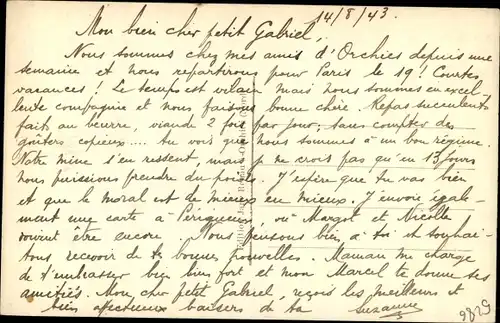 14/8/43.
Mon bien cher petit Gabriel,
Nous sommes chez mes amis d'Orchies depuis une
semaine et nous repartirons pour Paris le 19! Courtes
vacances! Le temps est vilain mais nous sommes en excel-
lente compagnie et nous faisons bonne chère. Repas succulents
faits au beurre, viande 2 fois par jour, sans compter des
goûters copieux.... tu vois que nous sommes à un bon régime.
Notre mine s'en ressent, mais je ne crois pas qu'en 15 jours
nous puissions prendre du poids. J'espère que tu vas bien
et que le moral est de mieux en mieux. J'envoie égale-
ment une carte à Périgueux, où Margot et Nicolle
doivent être encore. Nous pensons bien à toi et souhai-
tons recevoir de tes bonnes nouvelles. Maman me charge
de t'embrasser bien bien fort et mon Marcel te donne ses
amitiés. Mon cher petit Gabriel, reçois les meilleurs et
bien affectueux baisers de ta Suzanne
Orchies
9825